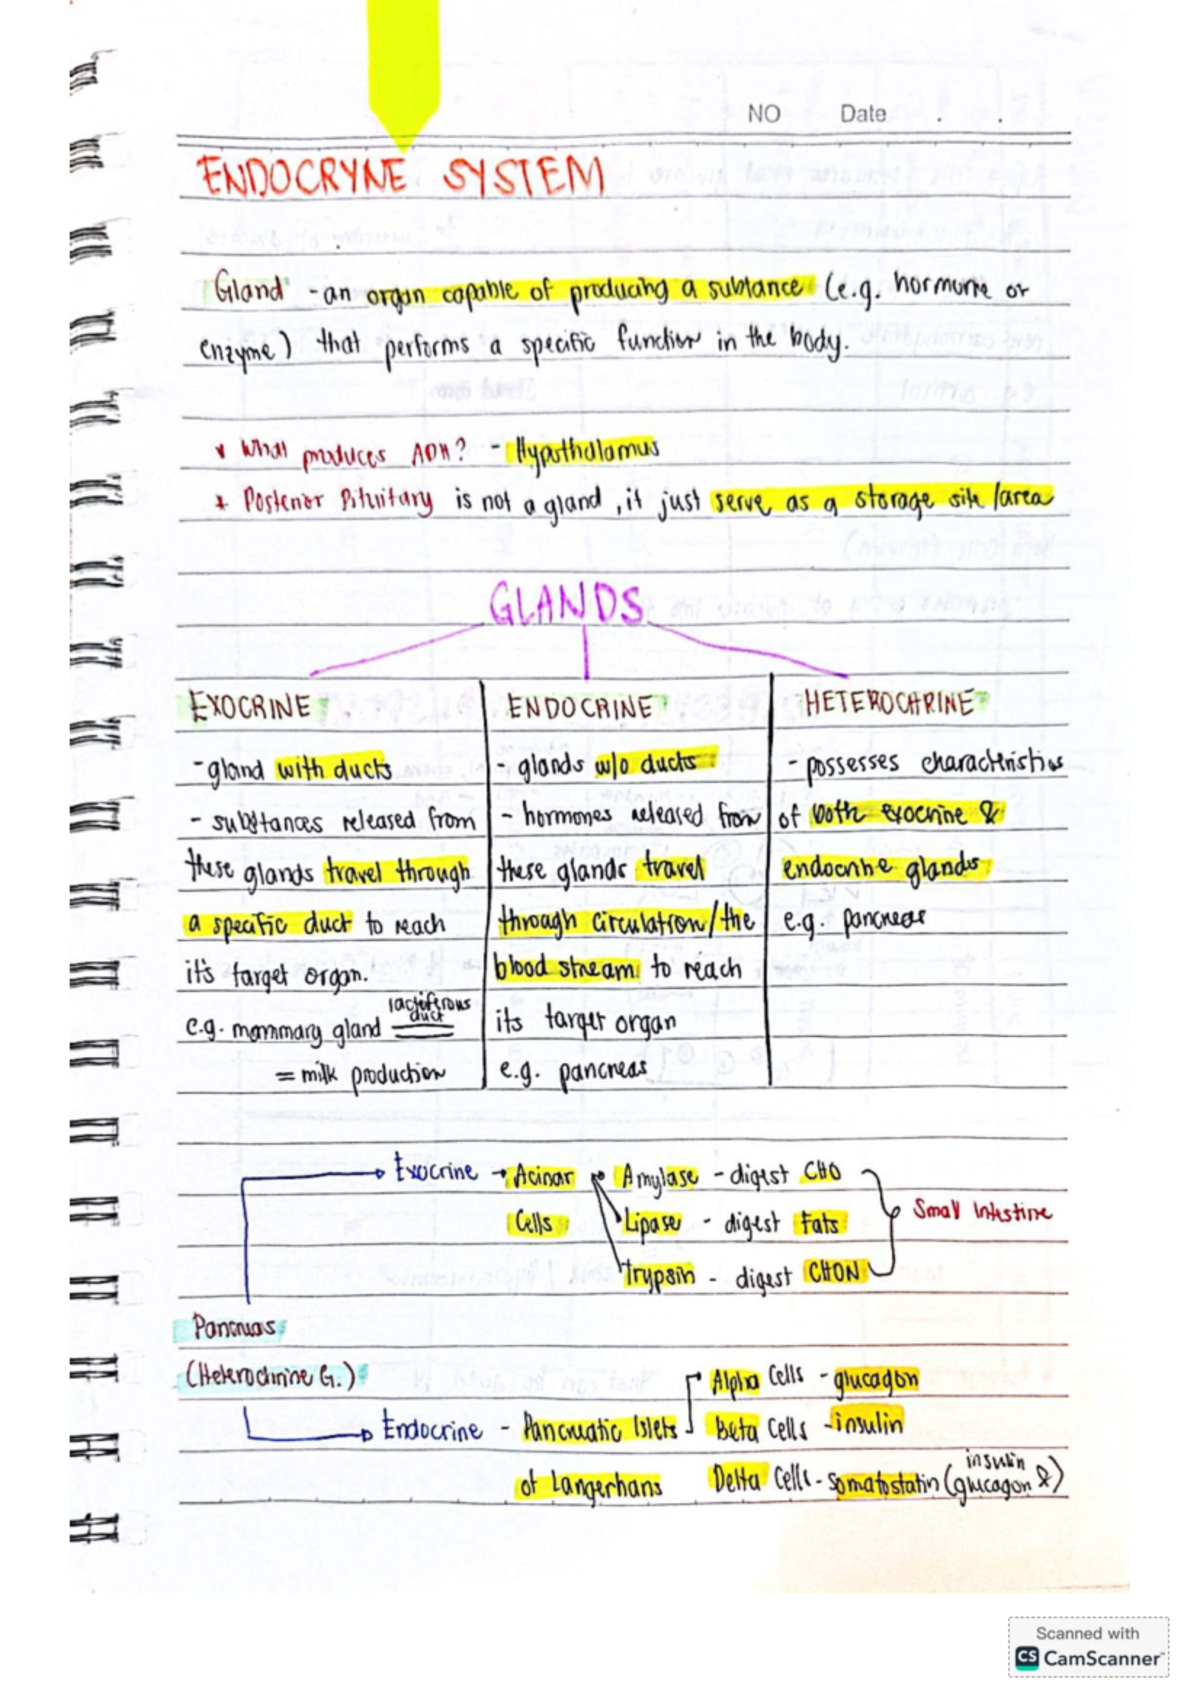 NO Date . .
ENDOCRYNE SYSTEM
Gland - an organ capable of producing a subtance (e.g. hormone or
enzyme) that performs a specific function in the body.
* What produces ADH? - Hypothalamus
* Posterior Pituitary is not a gland, it just serve as a storage site/area
GLANDS
EXOCRINE
- gland with ducts
- substances released from
these glands travel through
a specific duct to reach
it's target organ.
e.g. mammary gland lactiferous duct
= milk production
ENDOCRINE
- glands w/o ducts
- hormones released from
these glands travel
through circulation/the
blood stream to reach
its target organ
e.g. pancreas
HETEROCHRINE
- possesses characteristics
of both exocrine &
endocrine glands
e.g. pancreas
Exocrine → Acinar
Cells
Amylase - digest CHO
Lipase - digest Fats
Trypsin - digest CHON
Small Intestine
Pancreas
(Heterochrine G.)
Endocrine - Pancreatic Islets
of Langerhans
Alpha Cells - glucagon
Beta Cells - insulin
Delta Cells - somatostatin (glucagon & insulin)
Scanned with
CS CamScanner